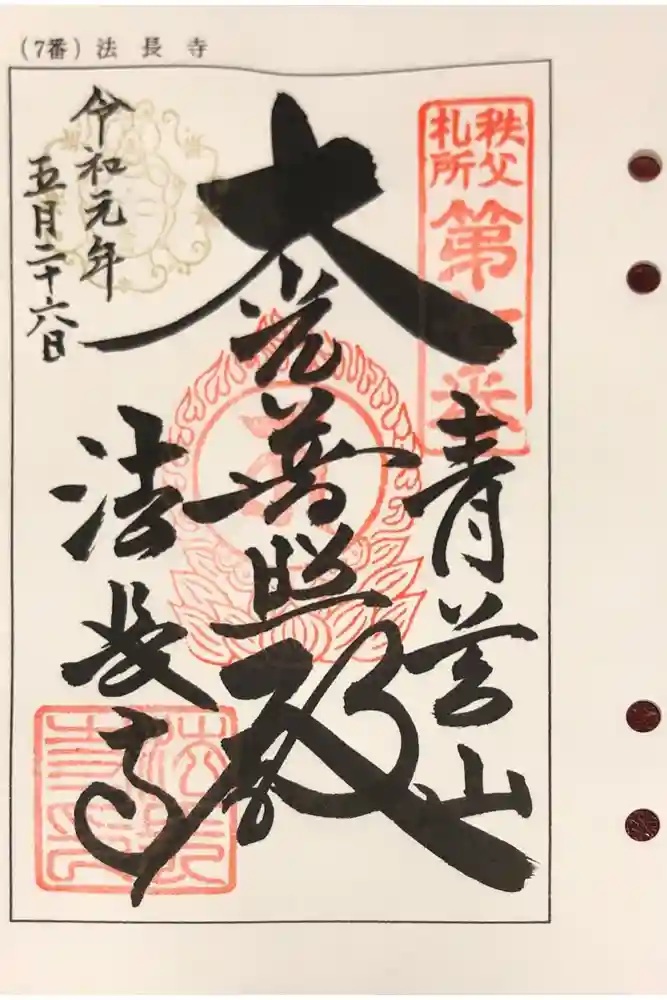 (7番) 法長寺
秩父
札所
第七番
青苔山
大光普照殿
法長寺
令和元年
五月二十六日